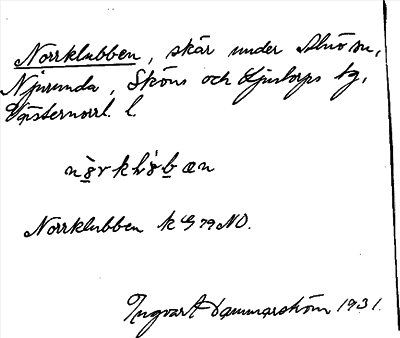 Norrklubben, skär under Alnö sn,
Njurunda, Sköns och Ljustorps tg,
Västernorrl. l.
Norrklubben k G 79 NO.
Ingvart Dammarström 1931.